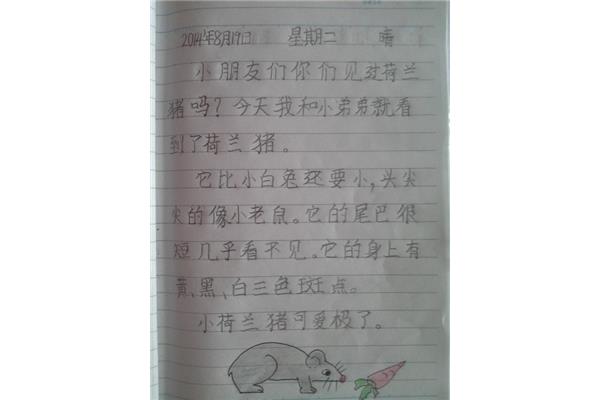 2014年8月19日 星期二 晴
小朋友们你们见过荷兰
猪吗？今天我和小弟弟就看
到了荷兰猪。
它比小白兔还要小，头尖
尖的像小老鼠。它的尾巴很
短几乎看不见。它的身上有
黄、黑、白三色斑点。
小荷兰猪可爱极了。